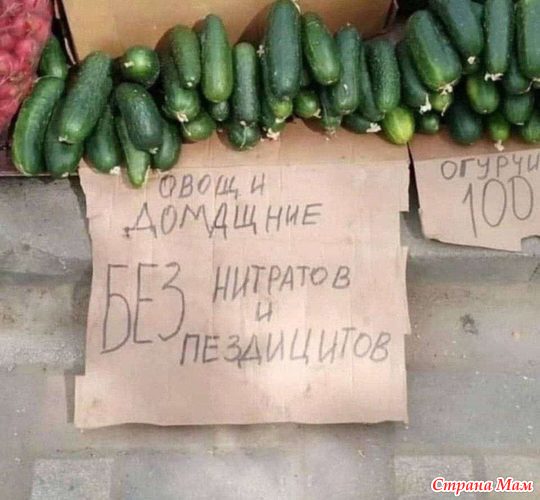 ОВОЩИ
ДОМАЩНИЕ
БЕЗ НИТРАТОВ
И
ПЕЗДИЦИТОВ
ОГУРЧИ
100
Страна Мам